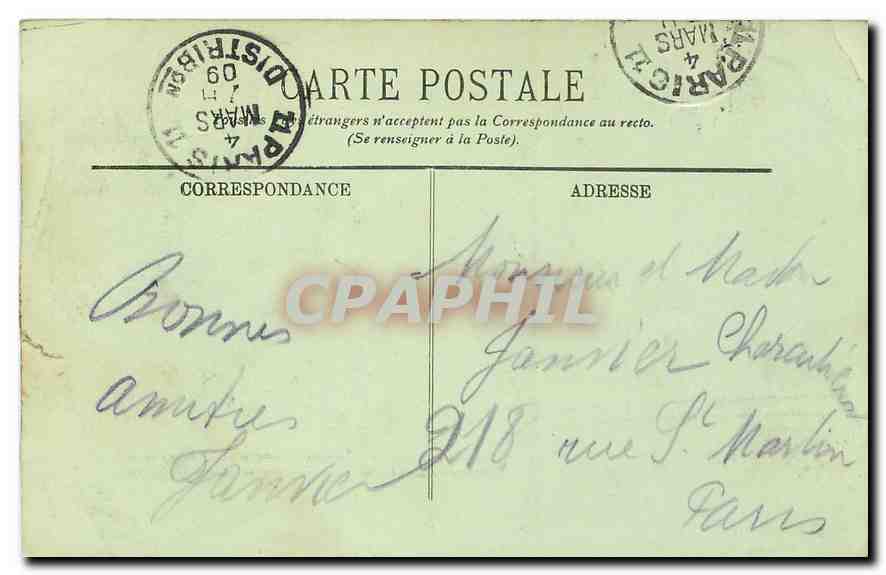 CARTE POSTALE
étrangers n'acceptent pas la Correspondance au recto.
(Se renseigner à la Poste).
PARIS 11
DISTRIBon
4
MARS
09
PARIS 11
4
MARS
CORRESPONDANCE
ADRESSE
Bonnes
amitiés
Janvier
Monsieur et Madam
Janvier
218 rue St Martin
Paris
CPAPHIL